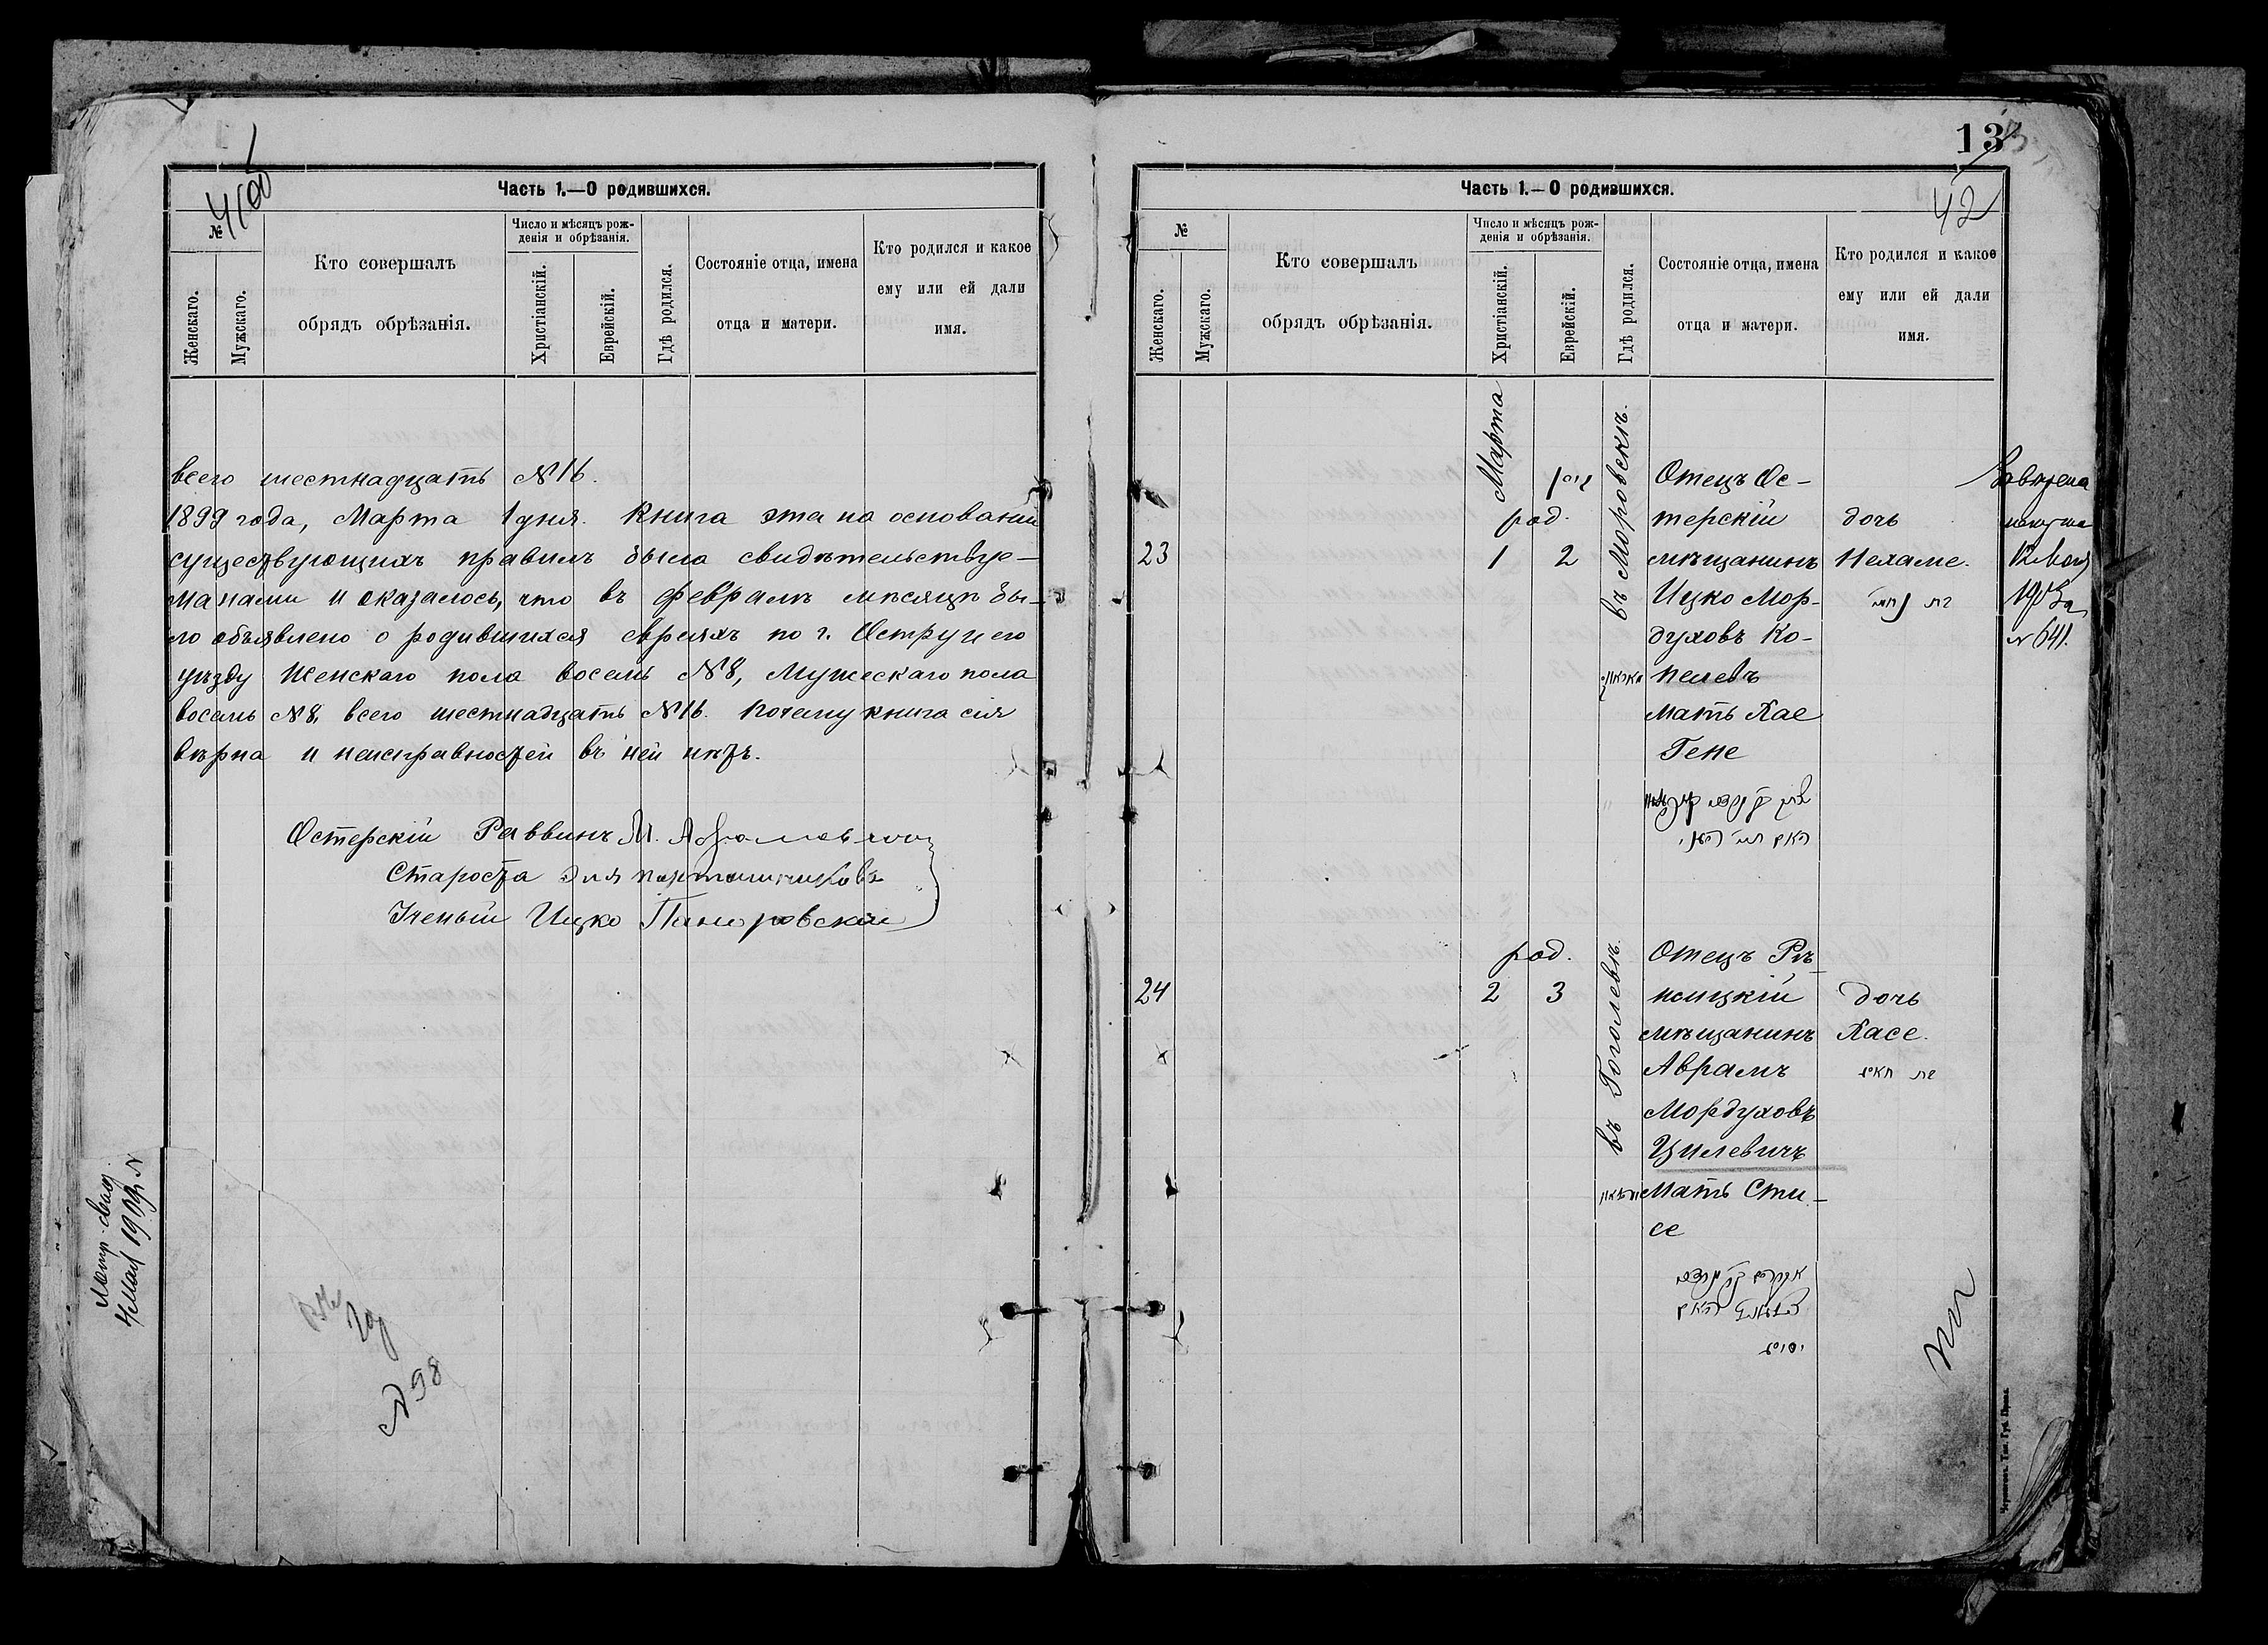 Часть 1.—О родившихся.
№
Женскаго.
Мужскаго.
Кто совершалъ
обрядъ обрѣзанія.
Число и мѣсяцъ рож-
денія и обрѣзанія.
Христіанскій.
Еврейскій.
Гдѣ родился.
Состояніе отца, имена
отца и матери.
Кто родился и какое
ему или ей дали
имя.
всего шестнадцать №16.
1899 года, Марта 1 дня. Книга эта на основаніи
существующихъ правилъ была свидѣтельствуе-
ма нами и оказалось, что въ февралѣ мѣсяцѣ бы-
ло объявлено о родившихся евреяхъ по г. Остру и его
уѣзду Женскаго пола восемь №8, Мужескаго пола
восемь №8, всего шестнадцать №16. Почему книга сія
вѣрна и неисправностей въ ней нѣтъ.
Остерскій Раввинъ М.
Староста для
Ученый Ицко
4 Мая 1909 г. №
№98
13
42
Часть 1.—О родившихся.
№
Женскаго.
Мужскаго.
Кто совершалъ
обрядъ обрѣзанія.
Число и мѣсяцъ рож-
денія и обрѣзанія.
Христіанскій.
Еврейскій.
Гдѣ родился.
Состояніе отца, имена
отца и матери.
Кто родился и какое
ему или ей дали
имя.
Марта
ניסן
род.
23
1
2
въ Моровскѣ.
Отецъ Ос-
терскій
мѣщанинъ
Ицко Мор-
духовъ Ко-
пелевъ
Мать Хае
Гене
дочь
Нехаме.
בת נחמה
12 Мая
№641.
род.
24
2
3
въ Гоголевѣ.
Отецъ Рѣ-
пицкій
мѣщанинъ
Аврамъ
Мордуховъ
Цилевичъ
Мать Сти-
се
дочь
Хасе.
בת חאסע
Чернигов. Тип. Губ. Правл.